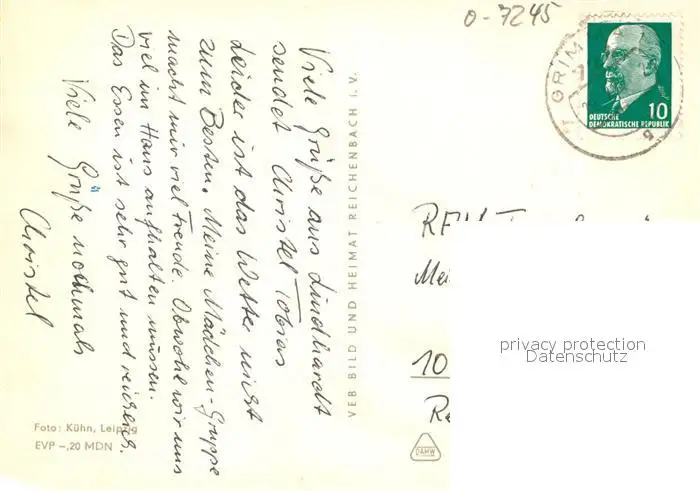 0-7245
GRIM
DEUTSCHE
DEMOKRATISCHE REPUBLIK
10
Viele Grüße aus Lindhardt
sendet Christel Tobias
Leider ist das Wetter nicht
zum Besten. Meine Mädchen-Gruppe
macht mir viel Freude. Obwohl wir uns
viel im Haus aufhalten müssen.
Das Essen ist sehr gut und reichend.
Viele Grüße nochmals
Christel
VEB BILD UND HEIMAT REICHENBACH I. V.
Mei
10
Re
privacy protection
Datenschutz
Foto: Kühn, Leipzig
EVP -,20 MDN
DAMW